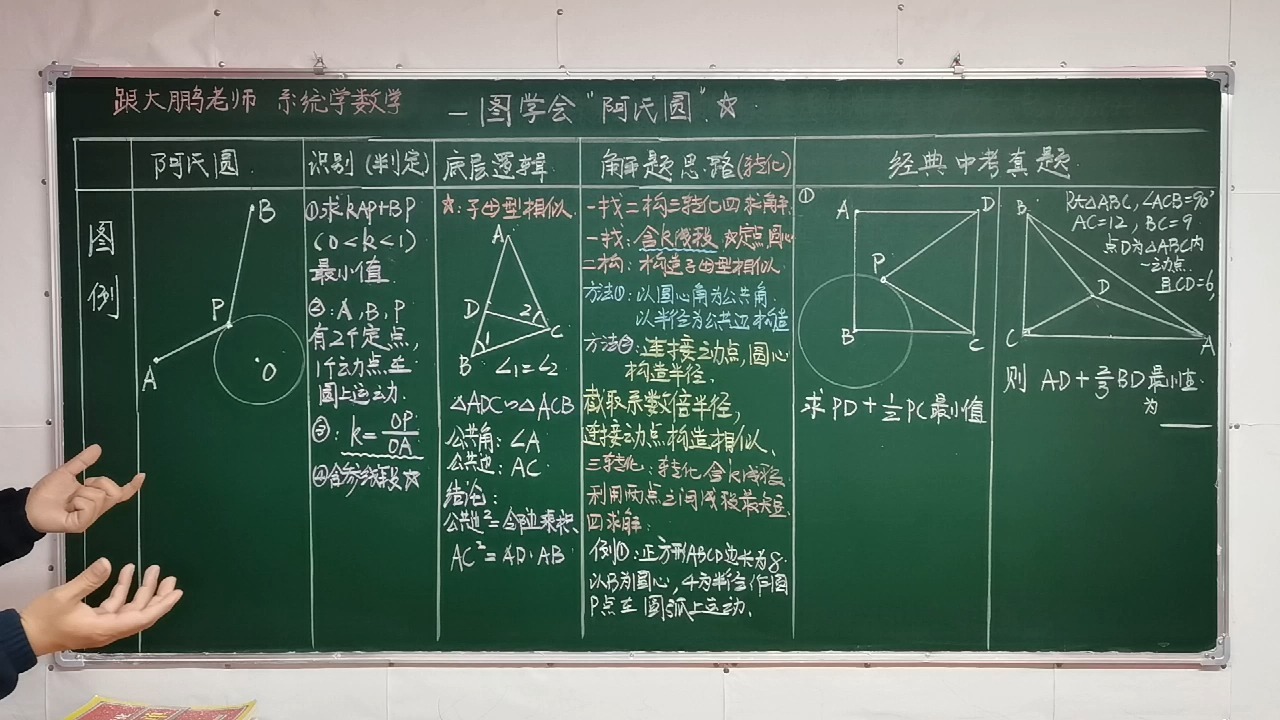 跟大鹏老师 系统学数学 一图学会"阿氏圆"☆
阿氏圆
识别(判定)
底层逻辑
解题思路(转化)
经典中考真题
图
例
B
P
A
O
①求kAP+BP
(0<k<1)
最小值
②:A,B,P
有2个定点,
1个动点在
圆上运动.
③:k=OP/OA
④含参线段☆
☆:子母型相似.
A
D
2
C
1
B
∠1=∠2
△ADC∽△ACB
公共角:∠A
公共边:AC
结论:
公共边²=今陆乘积.
AC²=AD·AB
一找二构三转化四求解.
一找:含k线段,☆定点圆心
二构:构造子母型相似
方法①:以圆心角为公共角.
以半径为公共边构造
方法②:连接动点,圆心
构造半径.
截取系数倍半径,
连接动点构造相似.
三转化:转化含k线段.
利用两点之间线段最短.
四求解:
例①:正方形ABCD边长为8.
以B为圆心,4为半径作圆
P点在圆弧上运动.
①
A
D
P
B
C
求PD+1/2PC最小值
B
D
C
A
Rt△ABC,∠ACB=90°
AC=12,BC=9
点D为△ABC内
一动点.
且CD=6,
则 AD+2/3BD最小值
为